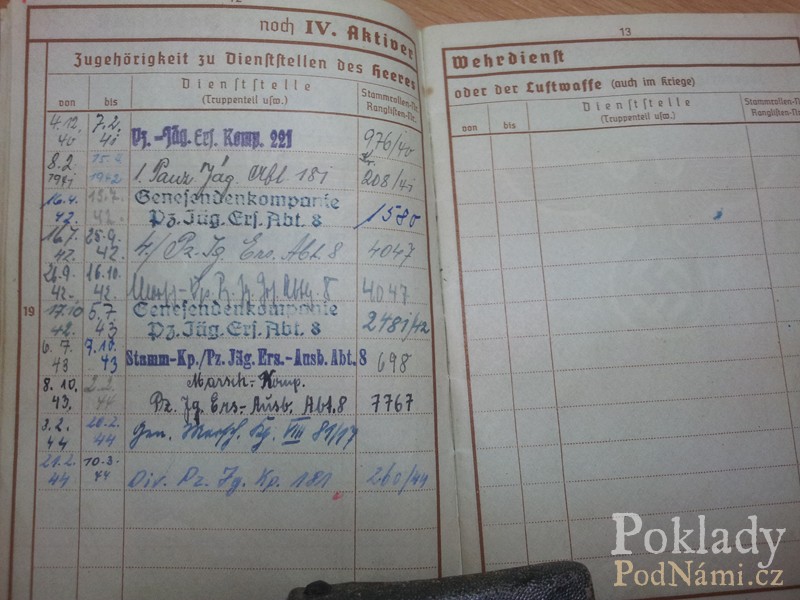 12
noch IV. Aktiver
Zugehörigkeit zu Dienststellen des Heeres
von
bis
Dienststelle
(Truppenteil usw.)
Stammrollen-Nr.
Ranglisten-Nr.
4.12. 40 7.2. 41 Pz.-Jäg. Ers. Komp. 221 976/40
8.2. 1941 1942 1. Panz Jäg Abt 181 208/41
16.4. 42. 42. Genesendenkompanie
Pz. Jäg. Ers. Abt. 8 1580
16.7. 42. 25.9. 42. 4./Pz. Jg. Ers. Abt. 8 4047
26.9. 42. 16.10. 42. 4047
19
17.10 42. 5.7. 43 Genesendenkompanie
Pz. Jäg. Ers. Abt. 8 2481/42
6.7. 43 7.10. 43 Stamm-Kp./Pz. Jäg. Ers.-Ausb. Abt. 8 698
8.10. 43. 2.2. 44 Marsch-Komp.
Pz. Jg. Ers.-Ausb. Abt. 8 7767
3.2. 44 20.2. 44 Gen. Marsch. Kp.
21.2. 44 10.3. 44 Div. Pz. Jg. Kp. 181 260/44
13
Wehrdienst
oder der Luftwaffe (auch im Kriege)
von
bis
Dienststelle
(Truppenteil usw.)
Stammrollen-Nr.
Ranglisten-Nr.
Poklady
PodNámi.cz